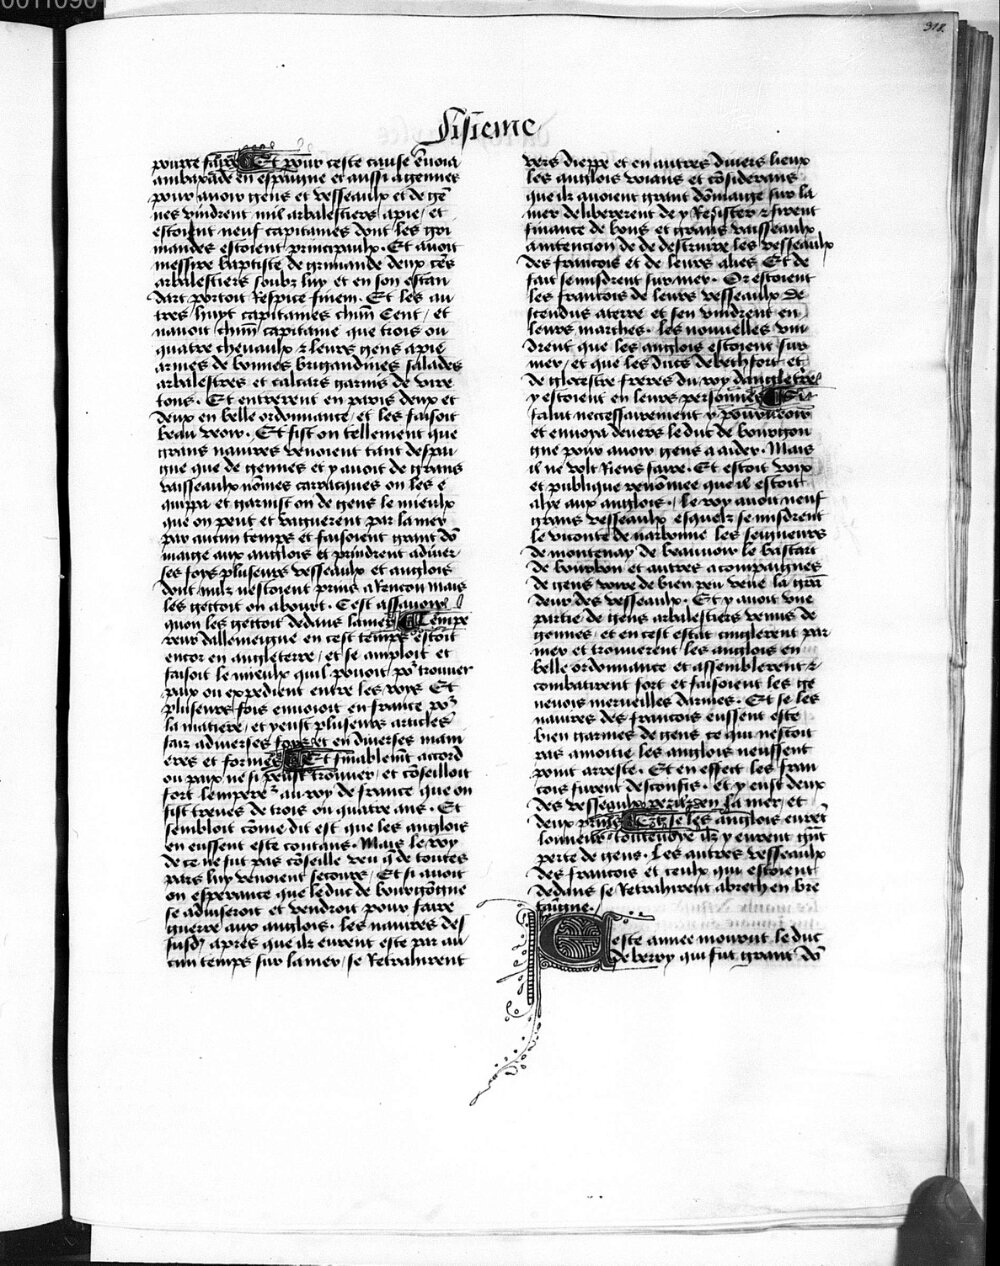 0011090
312
Sisieme
pourre faire Et pour ceste cause envoia
ambaxade en espaigne et aussi a gennes
pour avoir gens et vesseaulx et de gen
nes vindrent mil arbalestiers a pie / et
estoient neuf capitaines dont les gri
mandes estoient principaulx . Et avoit
messire baptiste de grimande deux cēs
arbalestiers soubz luy et en son estan
dart portoit Respice finem . Et les au
tres huyt capitaines chūn Cent / et
navoit chūn capitaine que trois ou
quatre chevaulx & leurs gens a pie
armes de bonnes brigandines salades
arbalestres et calcars garnis de vire
tons . Et entrerent en paris deux et
deux en belle ordonnance / et les faisoit
beau veoir . Et fist on tellement que
grans navires venoient tant despai
gne que de gennes et y avoit de grans
vaisseaulx nōmes carracques on les e
quippa et garnist on de gens le mieulx
que on peut et vaguerent par la mer
par aucun temps et faisoient grant dō
maige aux anglois et prindrent a diver
ses foys plusieurs vesseaulx et anglois
dont nulz nestoient prins a Rencon mais
les gettoit on a bourt . Cest assavoir
quon les gettoit dedans la mer Lempe
reur dallemaigne en cest temps estoit
encor en angleterre / et se amploit et
faisoit le mieulx quil pouoit po' trouver
paix ou expedient entre les roys Et
plusieurs fois envoioit en france po'
la matiere / et y eust plusieurs articles
faiz a diverses foys et en diverses mani
eres et formes Et finablemēt accord
ou paix ne si peust trouver / et cōseilloit
fort lempere' au roy de france que on
fist treves de trois ou quatre ans . Et
sembloit cōme dit est que les anglois
en eussent este contans . Mais le roy
de ce ne fut pas cōseille veu q̄ de toutes
pars luy venoient secours / Et si avoit
on esperance que le duc de bourgōgne
se adviseroit et vendroit pour faire
guerre aux anglois . les navires des
susd' apres que ilz eurent este par au
cun temps sur la mer / se Retrahirent
vers dieppe et en autres divers lieux
les anglois voians et cōsiderans
que ilz avoient grant dōmaige sur la
mer delibererent de y Resister & firent
finance de bons et grans vaisseaulx
a intencion de de destruire les vesseaulx
des francois et de leurs alies Et de
fait se misdrent sur mer . Or estoient
les francois de leurs vesseaulx de
scendus a terre et sen vindrent en
leurs marches . les nouvelles vin
drent que les anglois estoient sur
mer / et que les ducs de bethfort et
de glocestre freres du roy dangleterre
y estoient en leurs personnes Si
falut necessairement y pourveoir
et envoya devers le duc de bourgon
gne pour avoir gens a aider . Mais
il ne volt Riens faire . Et estoit voix
et publique renōmee que il estoit
alye aux anglois . Le roy avoit neuf
grans vesseaulx esquelz se misdrent
le viconte de narbonne les seigneurs
de montenay de beauvoir le bastart
de bourbon et autres acompaignes
de gens voire de bien peu veue la grā
deur des vesseaulx . Et y avoit une
partie de gens arbalestiers venus de
gennes / et en cest estat cinglerent par
mer et trouverent les anglois en
belle ordonnance et assemblerent &
combatirent fort et faisoient les ge
nevois merveilles darmes . Et se les
navires des francois eussent este
bien garnies de gens ce qui nestoit
pas a moitie les anglois neussent
point arreste . Et en effect les fran
cois furent desconfis . et y eust deux
des vesseaulx en la mer / et
deux prins Et se les anglois eurēt
lonneur touteuoye ilz y eurent grāt
perte de gens . Les autres vesseaulx
des francois et ceulx qui estoient
dedans se Retrahirent a breth en bre
taigne .
Ceste annee mourut le duc
de berry qui fut grant dō